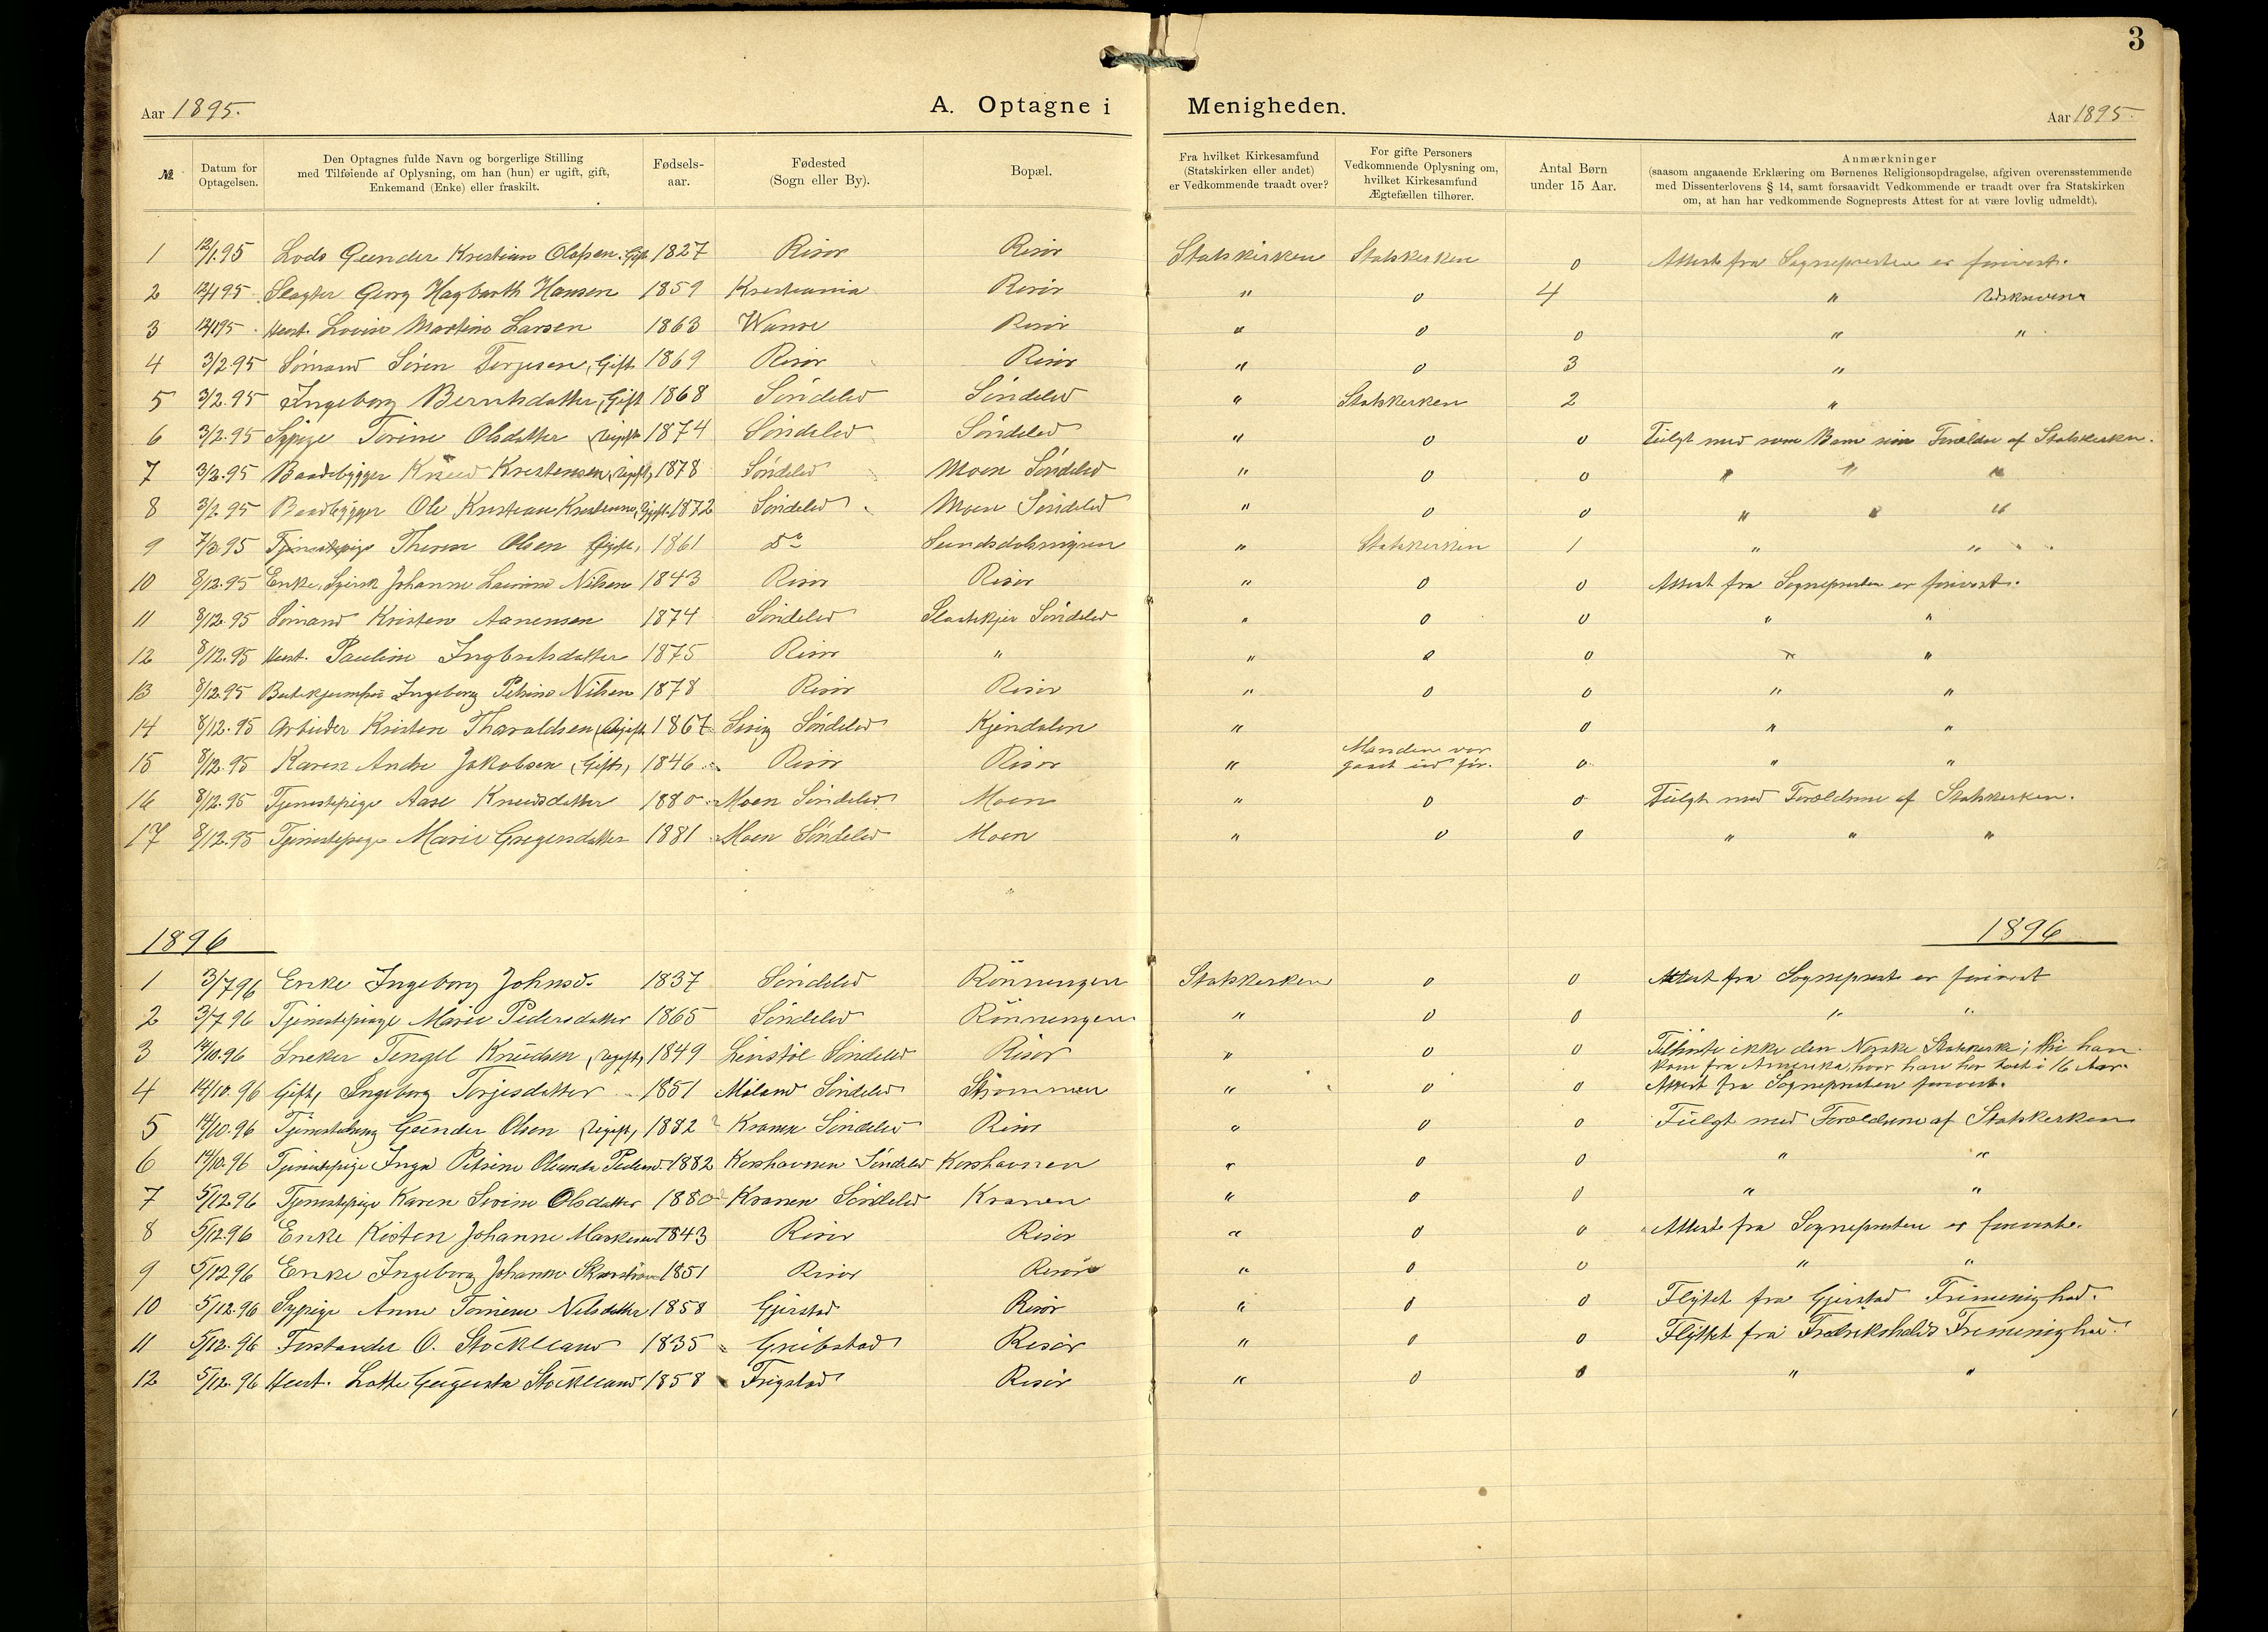 3
Aar 1895. A. Optagne i Menigheden. Aar 1895.
№ Datum for Optagelsen. Den Optagnes fulde Navn og borgerlige Stilling med Tilføiende af Oplysning, om han (hun) er ugift, gift, Enkemand (Enke) eller fraskilt. Fødsels-aar. Fødested (Sogn eller By). Bopæl. Fra hvilket Kirkesamfund (Statskirken eller andet) er Vedkommende traadt over? For gifte Personers Vedkommende Oplysning om, hvilket Kirkesamfund Ægtefællen tilhører. Antal Børn under 15 Aar. Anmærkninger (saasom angaaende Erklæring om Børnenes Religionsopdragelse, afgiven overensstemmende med Dissenterlovens § 14, samt forsaavidt Vedkommende er traadt over fra Statskirken om, at han har vedkommende Sogneprests Attest for at være lovlig udmeldt).
1 12/1.95 Lods Gunder Kristian Olafsen. Gift 1827 Risør Risør Statskirken Statskirken 0 Attest fra Sognepresten er forevist.
2 12/1 95 Slagter Georg Hagbarth Hansen 1859 Kristiania Risør " 0 4 "
3 12/1 95 Hust. Lovise Martine Larsen 1863 Risør " 0 0 " "
4 3/2.95 Sömand Sören Terjesen, Gift 1869 Risör Risör " 0 3 "
5 3/2.95 Ingeborg Berntsdatter, Gift 1868 Söndeled Söndeled " Statskirken 2 "
6 3/2.95 Sypige Torine Olsdatter 1874 Söndeled Söndeled " 0 0 Fulgt med som Barn sine Foreldre af Statskirken.
7 3/2.95 Baadebygger Knud Kristensen, Ugift, 1878 Söndeled Moen Söndeled " 0 0 " " "
8 3/2.95 Baadbygger Ole Kristian Kristensen, Ugift. 1872 Söndeled Moen Söndeled " 0 0 " " "
9 7/3.95 Tjenestepige Therese Olsen 1861 Do " Statskirken 1 " "
10 8/12.95 Enke, Johanne Lovise Nilsen 1843 Risör Risör " 0 0 Attest fra Sognepresten er forevist.
11 8/12.95 Sömand Kristen Aanensen 1874 Söndeled Söndeled " 0 0 " "
12 8/12.95 Hust. Pauline Ingbretsdatter 1875 Risör " " 0 0 " "
13 8/12.95 Ingeborg Petrine Nilsen 1878 Risör Risör " 0 0 " "
14 8/12.95 Arbeider Kristen Tharaldsen (Ugift 1867 Söndeled Kjendalen " 0 " "
15 8/12.95 Karen Andre Jakobsen (Gift, 1846 Risör Risör " Manden var gaaet ud för. 0 " "
16 8/12.95 Tjenestepige Aase Knudsdatter 1880 Moen Söndeled Moen " 0 0 Fulgt med Foreldrene af Statskirken.
17 8/12.95 Tjenestepige Marie Gregersdatter 1881 Moen Söndeled Moen " 0 0 " " "
1896 1896
1 3/7 96 Enke Ingeborg Johnsd. 1837 Söndeled Rönningen Statskirken 0 0 Attest fra Sogneprest er forevist
2 3/7 96 Tjenestepige Marie Pedersdatter 1865 Söndeled Rönningen " 0 0 " "
3 14/10.96 Sneker Tengel Knudsen, Ugift, 1849 Söndeled Risör " 0 0 Tilhörte ikke den Norske Statskirke; thi han
kom fra Amerika, hvor han har boet i 16 Aar.
4 14/10.96 Gift, Ingeborg Terjesdatter 1851 Söndeled " 0 0 Attest fra Sognepresten forevist.
5 14/10.96 Gunder Olsen Ugift, 1882 Kranen Söndeled Risör " 0 0 Fulgt med Foreldrene af Statskirken
6 14/10.96 Tjenestepige Inga Petrine Olanda Pedersd. 1882 Korshavnen Söndeled Korshavnen " 0 0 " "
7 5/12.96 Tjenestepige Karen Sevine Olsdatter 1880 Kranen Söndeled Kranen " 0 0 " "
8 5/12.96 Enke Kisten Johanne 1843 Risör Risör " 0 0 Attest fra Sognepresten er forevist.
9 5/12 96 Enke Ingeborg Johanne 1851 Risör Risör " 0 0 " "
10 5/12.96 Sypige Anne Nilsdatter 1858 Gjerstad Risör " 0 0 Flyttet fra Gjerstad Frimenighed.
11 5/12.96 Forstander O. Stöckeland 1835 Risör " 0 0 Flyttet fra Fredrikshalds Frimenighed.
12 5/12.96 Hust. Lotte Gugusta Stöckeland 1858 Risör " 0 0 " "